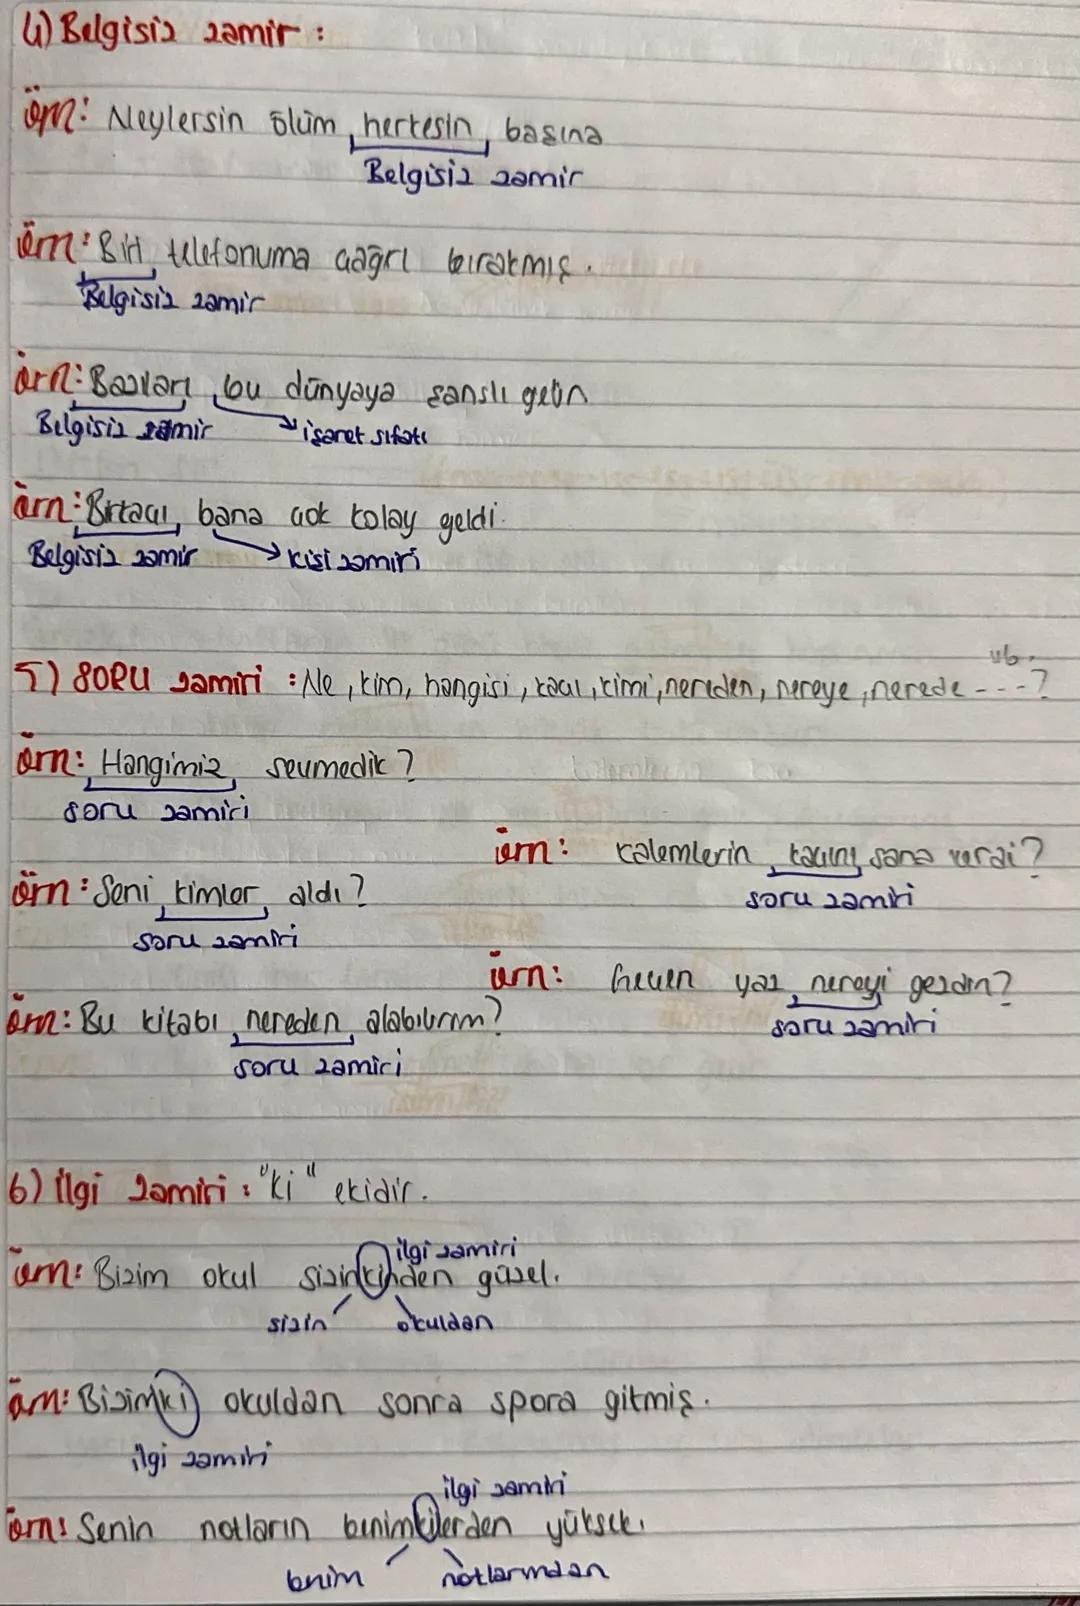 4) Belgisiz zamir :
örn: Neylersin ölüm herkesin başına
Belgisiz zamir
örn: Biri telefonuma çağrı bırakmış.
Belgisiz zamir
örn: Bazıları bu dünyaya şanslı gelir
Belgisiz zamir işaret sıfatı
örn: Birkaçı bana çok kolay geldi.
Belgisiz zamir kişi zamiri
vb.
5) SORU zamiri : Ne, kim, hangisi, kaçı, kimi, nereden, nereye, nerede ---?
örn: Hangimiz sevmedik?
soru zamiri
örn: kalemlerin kaçını sana verdi?
soru zamiri
örn: Seni kimler aldı?
soru zamiri
örn: Geçen yaz nereyi gezdin?
soru zamiri
örn: Bu kitabı nereden alabilirim?
soru zamiri
6) İlgi zamiri : "ki" ekidir.
ilgi zamiri
örn: Bizim okul sizinkinden güzel.
sizin okuldan
örn: Bizimki okuldan sonra spora gitmiş.
ilgi zamiri
ilgi zamiri
örn: Senin notların benimkilerden yüksek.
benim notlarımdan